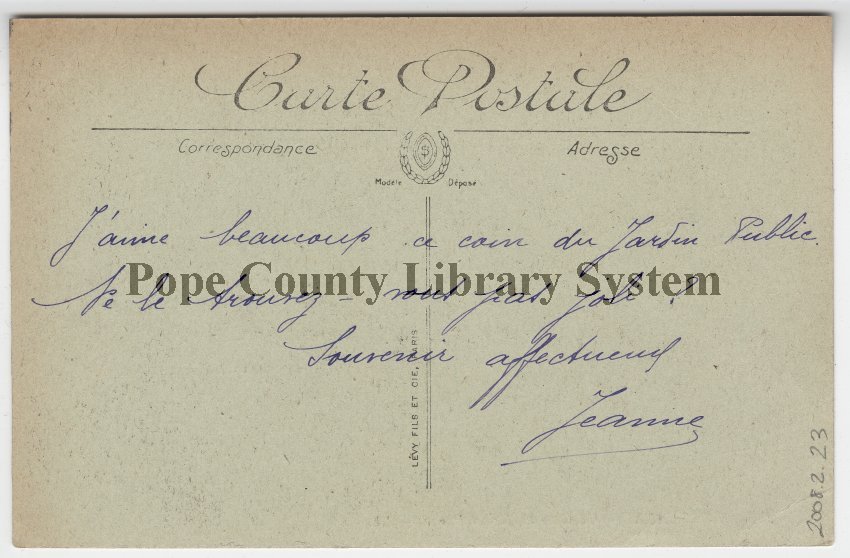 Carte Postale
Correspondance
Adresse
Modèle Déposé
J'aime beaucoup ce coin du Jardin Public.
Ne le trouvez-vous pas joli ?
Pope County Library System
Souvenir affectueux
Jeanne
LÉVY FILS ET CIE, PARIS
2008.2.23